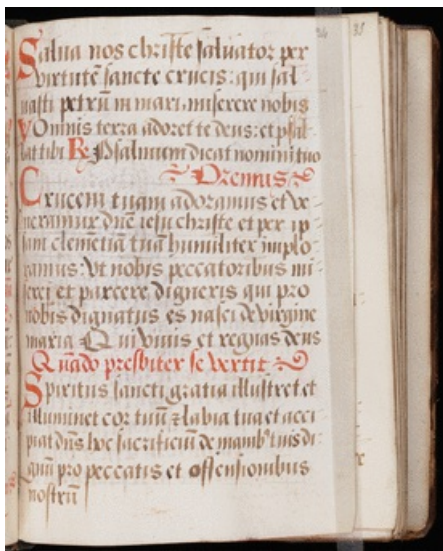 38
Salua nos christe saluator per
virtutē sancte crucis: qui sal-
uasti petrū in mari. miserere nobis
V Omnis terra adoret te deus: et psal-
lat tibi R Psalmum dicat nomini tuo
Oremus
Crucem tuam adoramus et ve-
neramur dñe iesu christe et per ip-
sam clemētiā tuā humiliter implo-
ramus: Vt nobis peccatoribus mi-
sereri et parcere digneris qui pro
nobis dignatus es nasci de virgine
maria Qui viuis et regnas deus
Quādo presbiter se vertit
Spiritus sancti gratia illustret et
illuminet cor tuū et labia tua et acci-
piat dñs hoc sacrificiū de manibꝰ tuis di-
gnū pro peccatis et offensionibus
nostrū